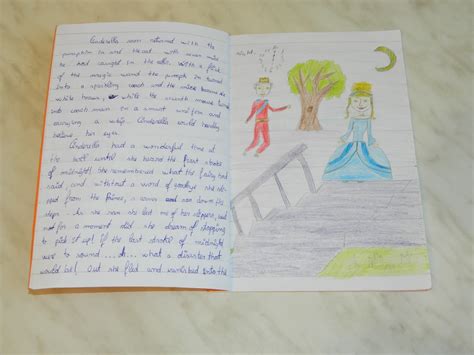 Cinderella soon returned with the
pumpkin in and the cat with seven mice
he had caught in the attic. With a flick
of the magic wand the pumpkin turned
into a sparkling coach and the mice became six
white horses, while the seventh mouse turned
into coachman in a smart uniform and
carrying a whip. Cinderella could hardly
believe her eyes.
Cinderella had a wonderful time at
the ball until she heard the first stroke
of midnight! She remembered what the fairy had
said, and without a word of goodbye she
from the Prince's arms and ran down the
steps. As she ran she lost one of her slippers, but
not for a moment did she dream of stopping
to pick it up! If the last stroke of midnight
were to sound... oh... what a disaster that
would be! Out she fled and vanished into the